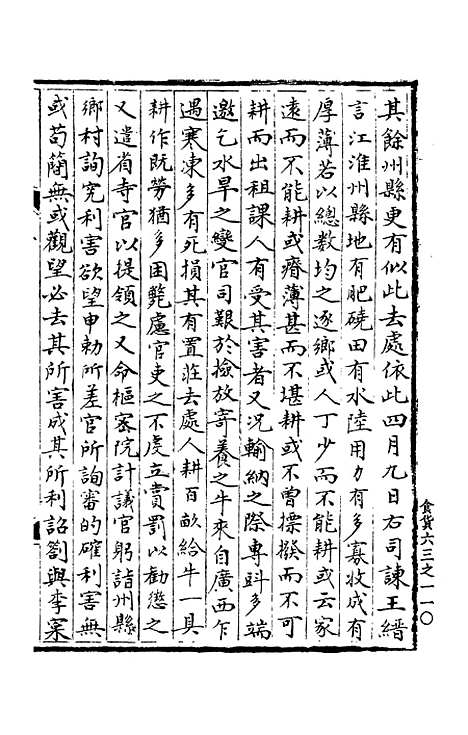 其餘州縣更有似此去處依此四月九日右司諫王縉
言江淮州縣地有肥磽田有水陸用力有多寡收成有
厚薄若以總數均之逐鄉或人丁少而不能耕或云家
遠而不能耕或瘠薄甚而不堪耕或不曾摽撥而不可
耕而出租課人有受其害者又況輸納之際專㪷多端
邀乞水旱之變官司艱於檢放寄養之牛來自廣西乍
遇寒凍多有死損其有置莊去處人耕百畝給牛一具
耕作既勞猶多困斃慮官吏之不虔立賞罰以勸懲之
又遣省寺官以提領之又命樞密院計議官躬詣州縣
鄉村詢究利害欲望申勅所差官所詢審的確利害無
或苟簡無或觀望必去其所害成其所利詔劄與李寀
食貨六三之一一〇